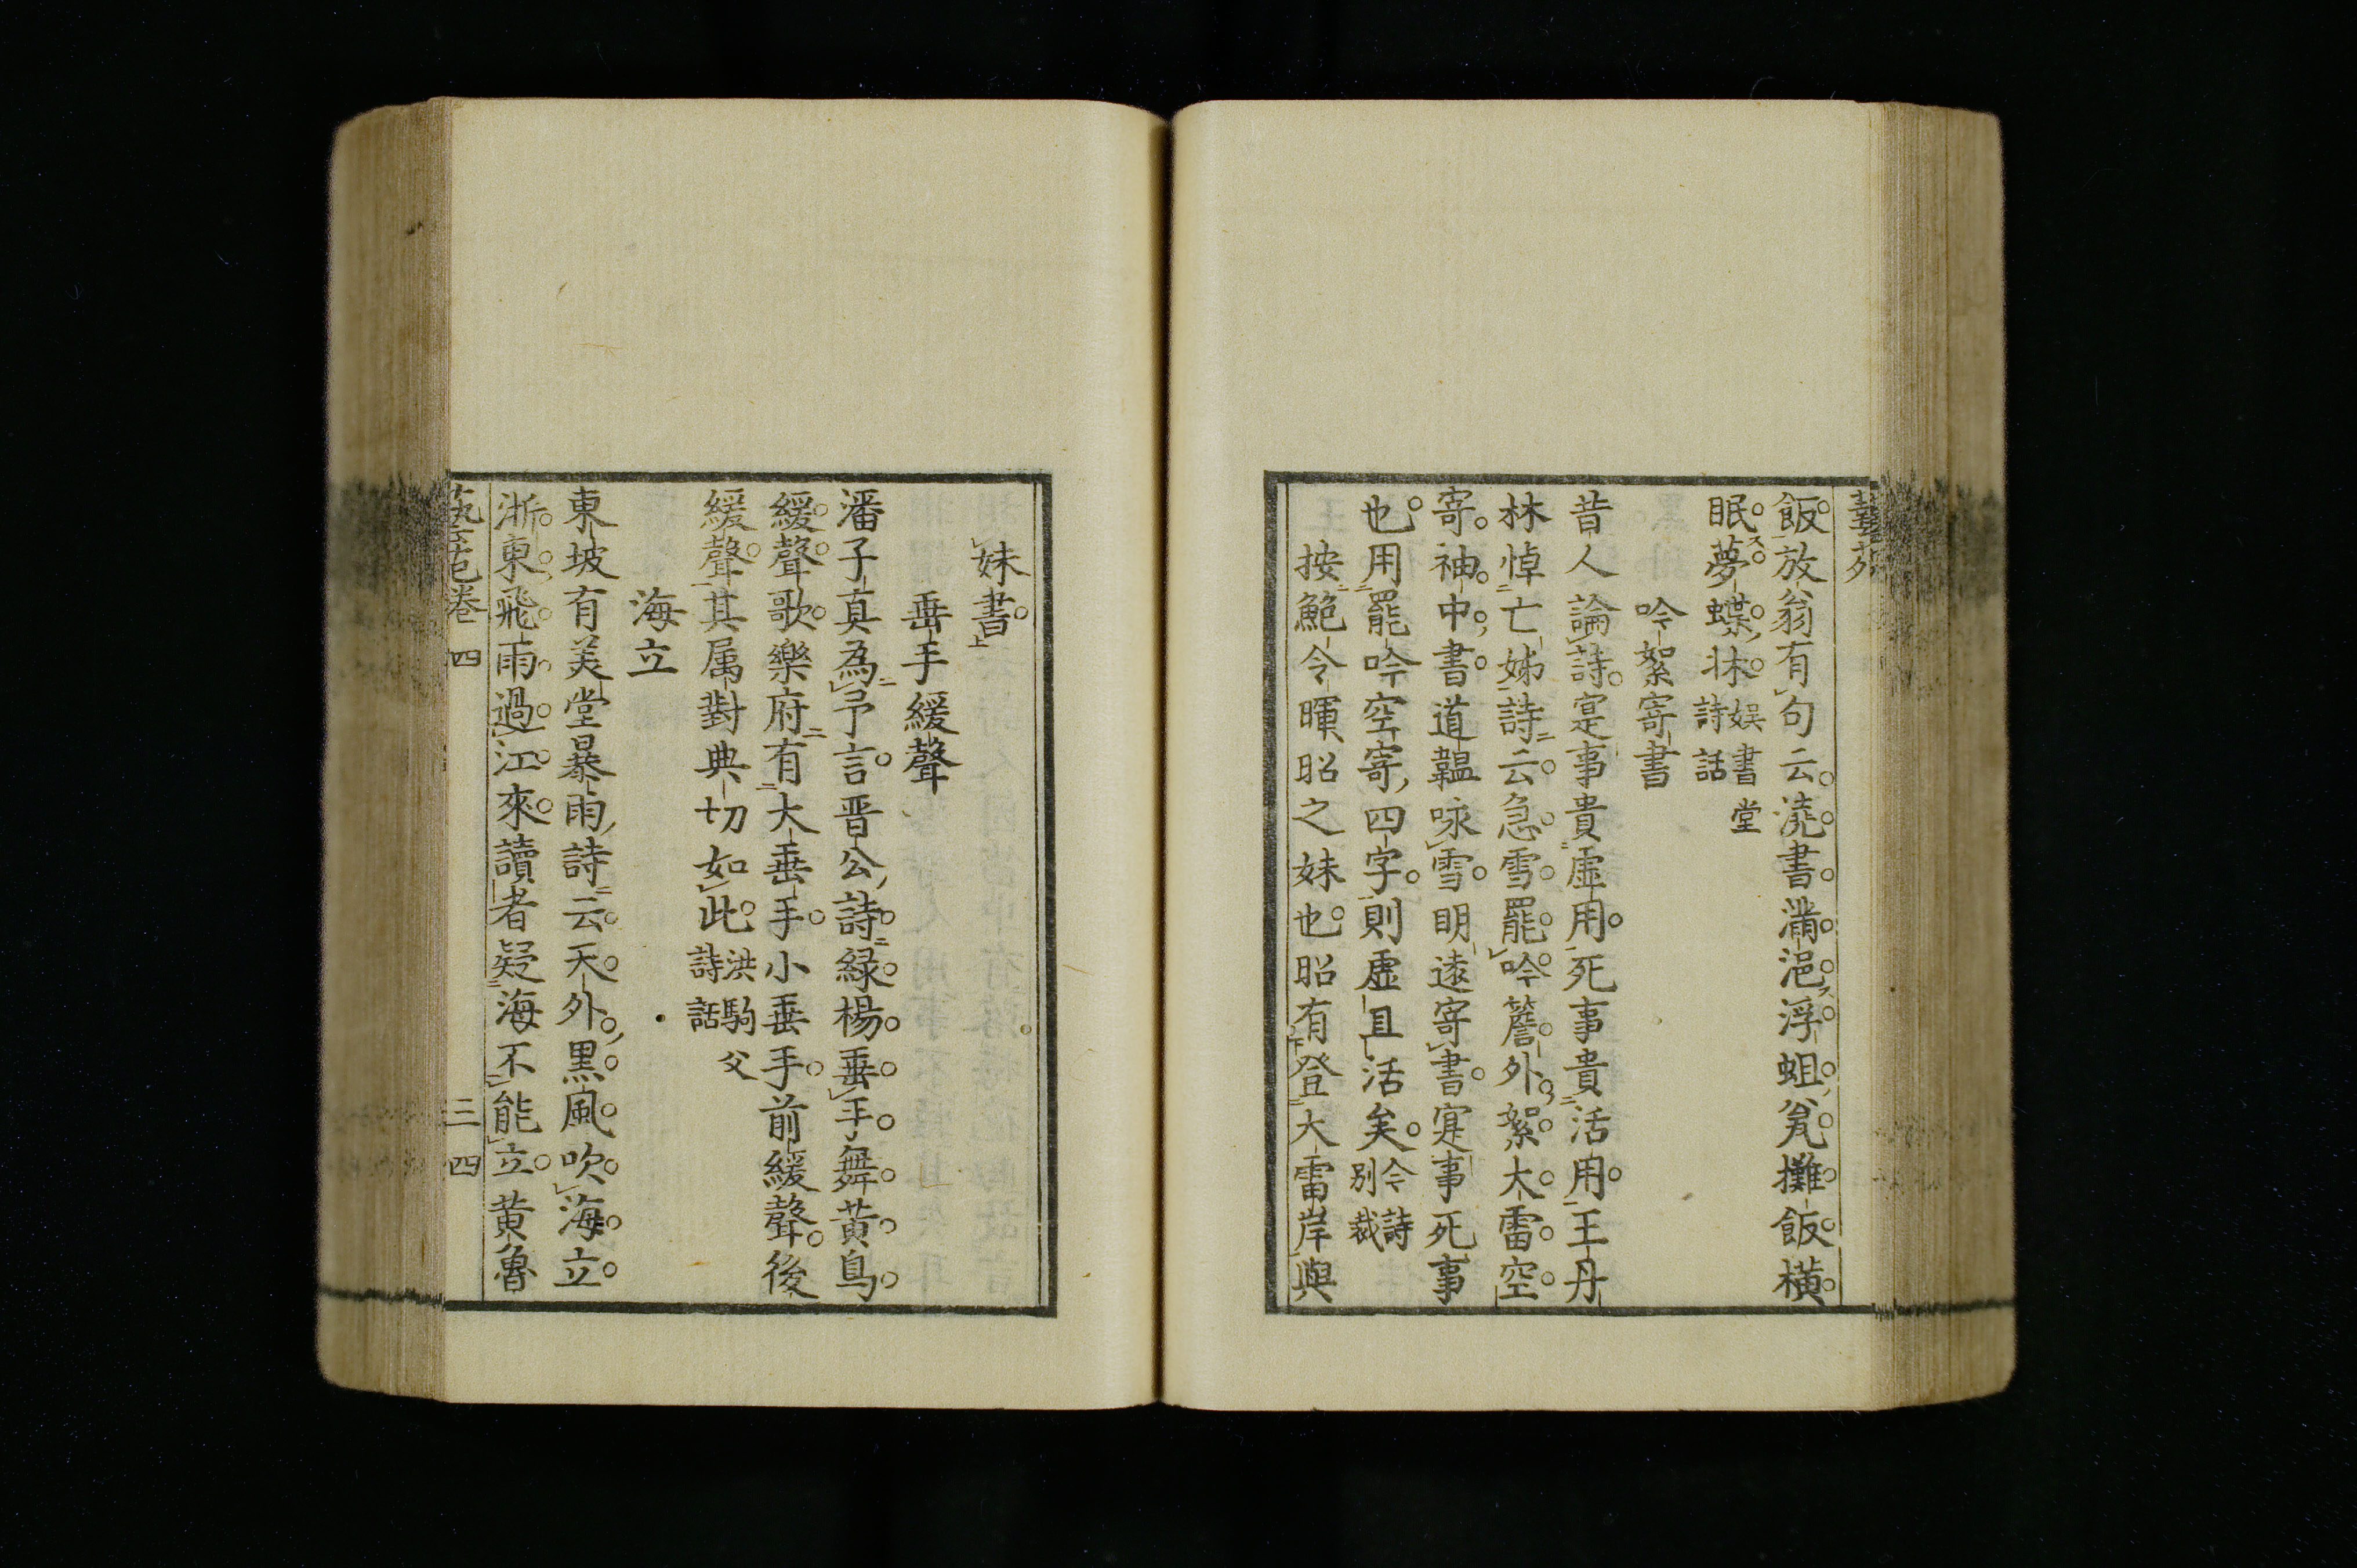 藝苑
飯放翁有句云澆書滿浥浮蛆瓮攤飯橫
眠夢蝶牀娯書堂詩話
吟絮寄書
昔人論詩寔事貴虛用死事貴活用王丹
林悼亡姊詩云急雪罷吟簷外絮大雷空
寄袖中書道韞咏雪明遠寄書寔事死事
也用罷吟空寄四字則虛且活矣今詩別裁
按鮑令暉昭之妹也昭有登大雷岸與
妹書
垂手緩聲
潘子真為予言晋公詩緑楊垂手舞黄鳥
緩聲歌樂府有大垂手小垂手前緩聲後
緩聲其属對典切如此洪駒父詩話
海立
東坡有美堂暴雨詩云天外黒風吹海立
浙東飛雨過江來讀者疑海不能立黄魯
藝苑卷四 三四